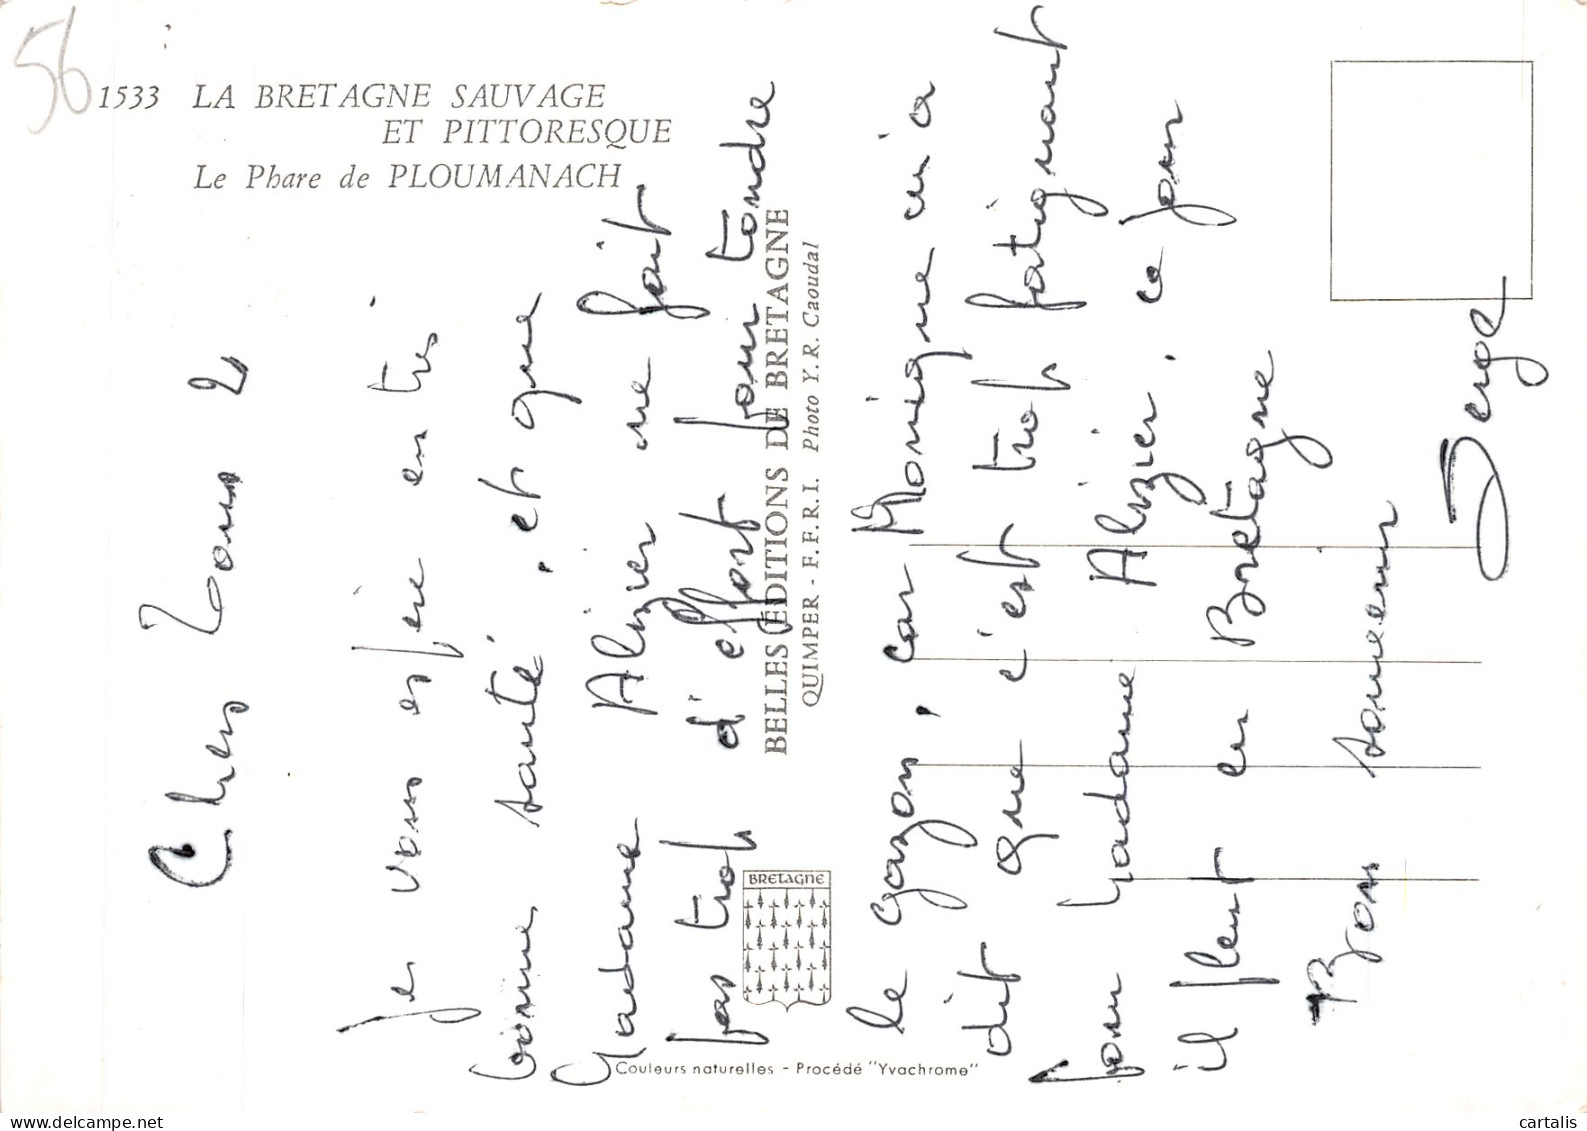 56
1533 LA BRETAGNE SAUVAGE
ET PITTORESQUE
Le Phare de PLOUMANACH
BELLES ÉDITIONS DE BRETAGNE
QUIMPER - F.F.R.I. Photo Y. R. Caoudal
BRETAGNE
Couleurs naturelles - Procédé "Yvachrome"
Chers Tous 2
Je vous espère en très
bonne santé, et que
Madame Alizier ne fait
pas trop d'effort pour tondre
le gazon, car Monique m'a
dit que c'est trop fatignant
pour Madame Alizier. ce jour
il pleut en Bretagne
Bons souvenirs
Serge
cartalis